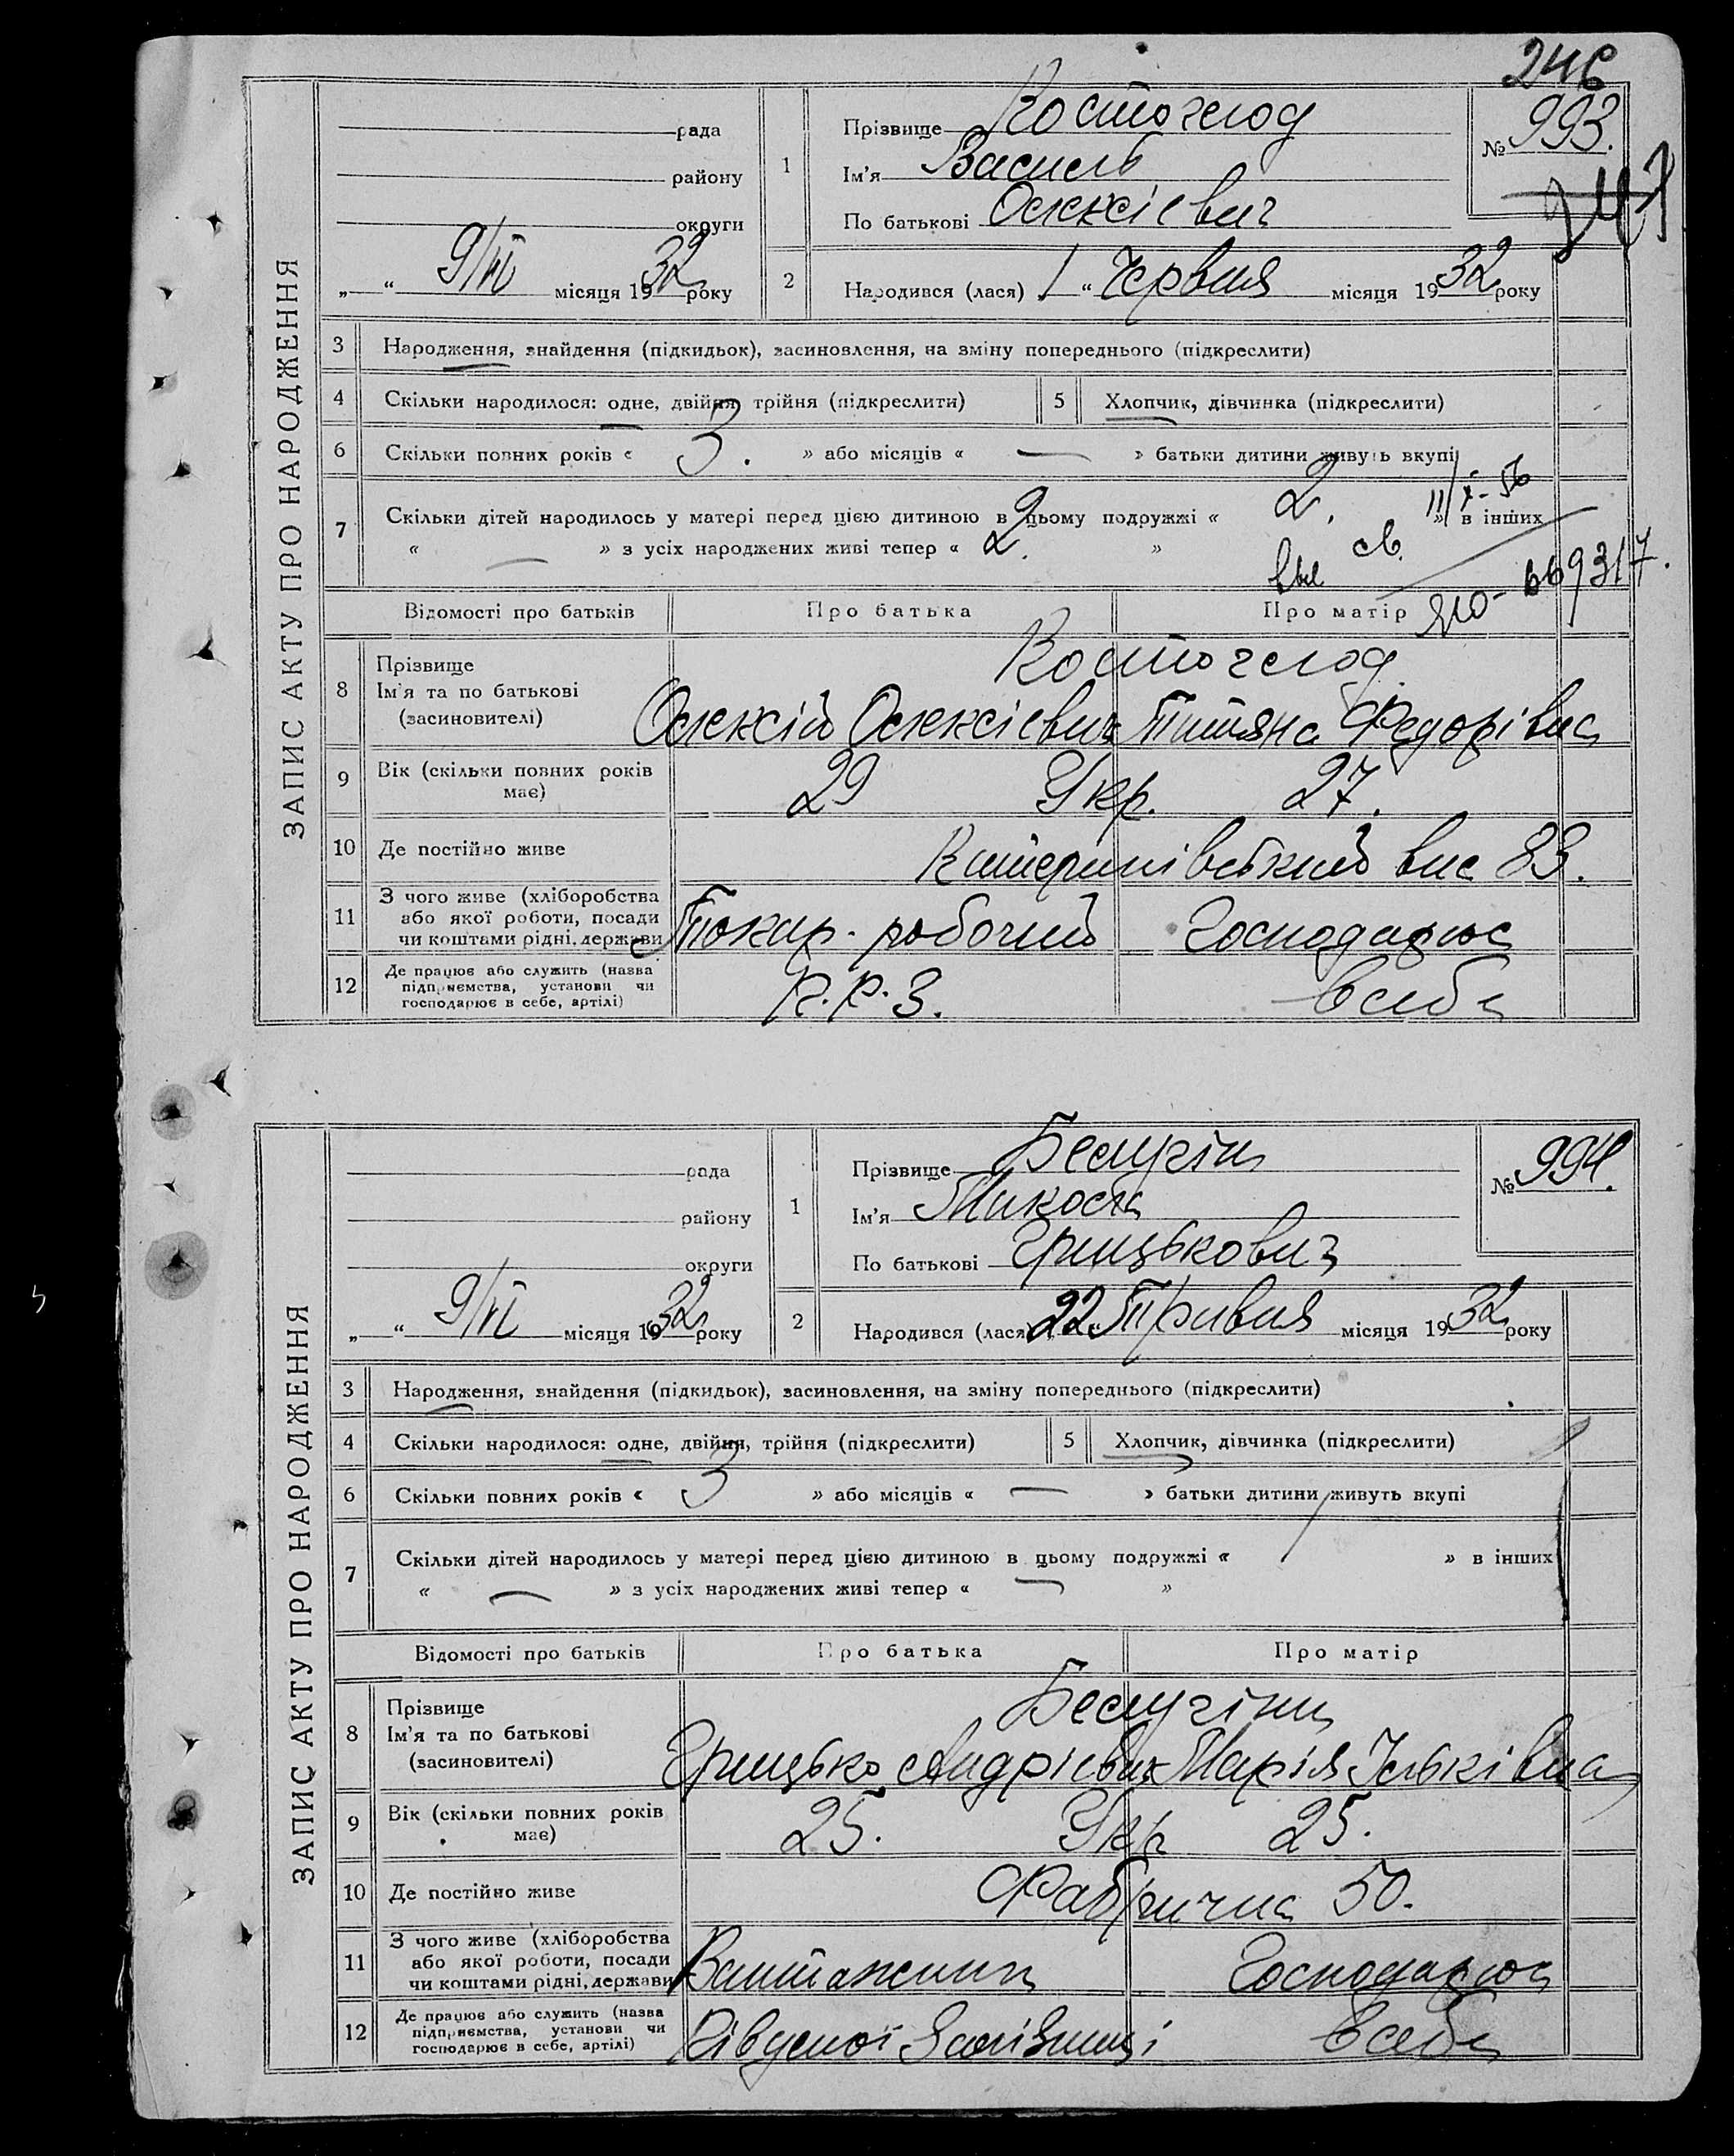 246
ЗАПИС АКТУ ПРО НАРОДЖЕННЯ
рада
району
округи
„ “ 9/VI місяця 1932 року
1
Прізвище Костоглод
Ім'я Василь
По батькові Олексієвич
№ 993.
247
2
Народився (лася) 1 “ Червня місяця 1932 року
3 Народження, знайдення (підкидьок), засиновлення, на зміну попереднього (підкреслити)
4 Скільки народилося: одне, двійня, трійня (підкреслити)
5 Хлопчик, дівчинка (підкреслити)
6 Скільки повних років « 3. » або місяців « — » батьки дитини живуть вкупі
7 Скільки дітей народилось у матері перед цією дитиною в цьому подружжі « 2. » в інших
« — » з усіх народжених живі тепер « 2. »
11/X-56
св.
669317.
Відомості про батьків Про батька Про матір
8 Прізвище
Ім'я та по батькові
(засиновителі)
Костоглод
Олексій Олексієвич Титяна Федорівна
9 Вік (скільки повних років
має)
29 Укр. 27.
10 Де постійно живе Катеринівський вис 83.
11 З чого живе (хліборобства
або якої роботи, посади
чи коштами рідні, держави
Токар. робочий Господарює
12 Де працює або служить (назва
підприємства, установи чи
господарює в себе, артілі)
П.Р.З. в себе
ЗАПИС АКТУ ПРО НАРОДЖЕННЯ
рада
району
округи
„ “ 9/VI місяця 1932 року
1
Прізвище Белугін
Ім'я Микола
По батькові Грицькович
№ 994.
2
Народився (лася) 22 Травня місяця 1932 року
3 Народження, знайдення (підкидьок), засиновлення, на зміну попереднього (підкреслити)
4 Скільки народилося: одне, двійня, трійня (підкреслити)
5 Хлопчик, дівчинка (підкреслити)
6 Скільки повних років « 3 » або місяців « — » батьки дитини живуть вкупі
7 Скільки дітей народилось у матері перед цією дитиною в цьому подружжі « / » в інших
« — » з усіх народжених живі тепер « — »
Відомості про батьків Про батька Про матір
8 Прізвище
Ім'я та по батькові
(засиновителі)
Белугіни
Грицько Андрієвич Марія Іськівна
9 Вік (скільки повних років
має)
25. Укр 25.
10 Де постійно живе Фабрична 50.
11 З чого живе (хліборобства
або якої роботи, посади
чи коштами рідні, держави
Вантажник Господарює
12 Де працює або служить (назва
підприємства, установи чи
господарює в себе, артілі)
Південої Залізниці в себе